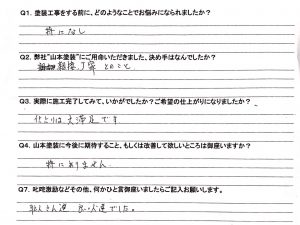 Q1. 塗装工事をする前に、どのようなことでお悩みになられましたか？
特になし
Q2. 弊社"山本塗装"にご用命いただきました、決め手はなんでしたか？
親切、丁寧とのこと
Q3. 実際に施工完了してみて、いかがでしたか？ご希望の仕上がりになりましたか？
仕上りは大満足です
Q4. 山本塗装に今後に期待すること、もしくは改善して欲しいところは御座いますか？
特にありません
Q7. 叱咤激励などその他、何かひと言御座いましたらご記入お願いします。
職人さん達 良い人達でした。